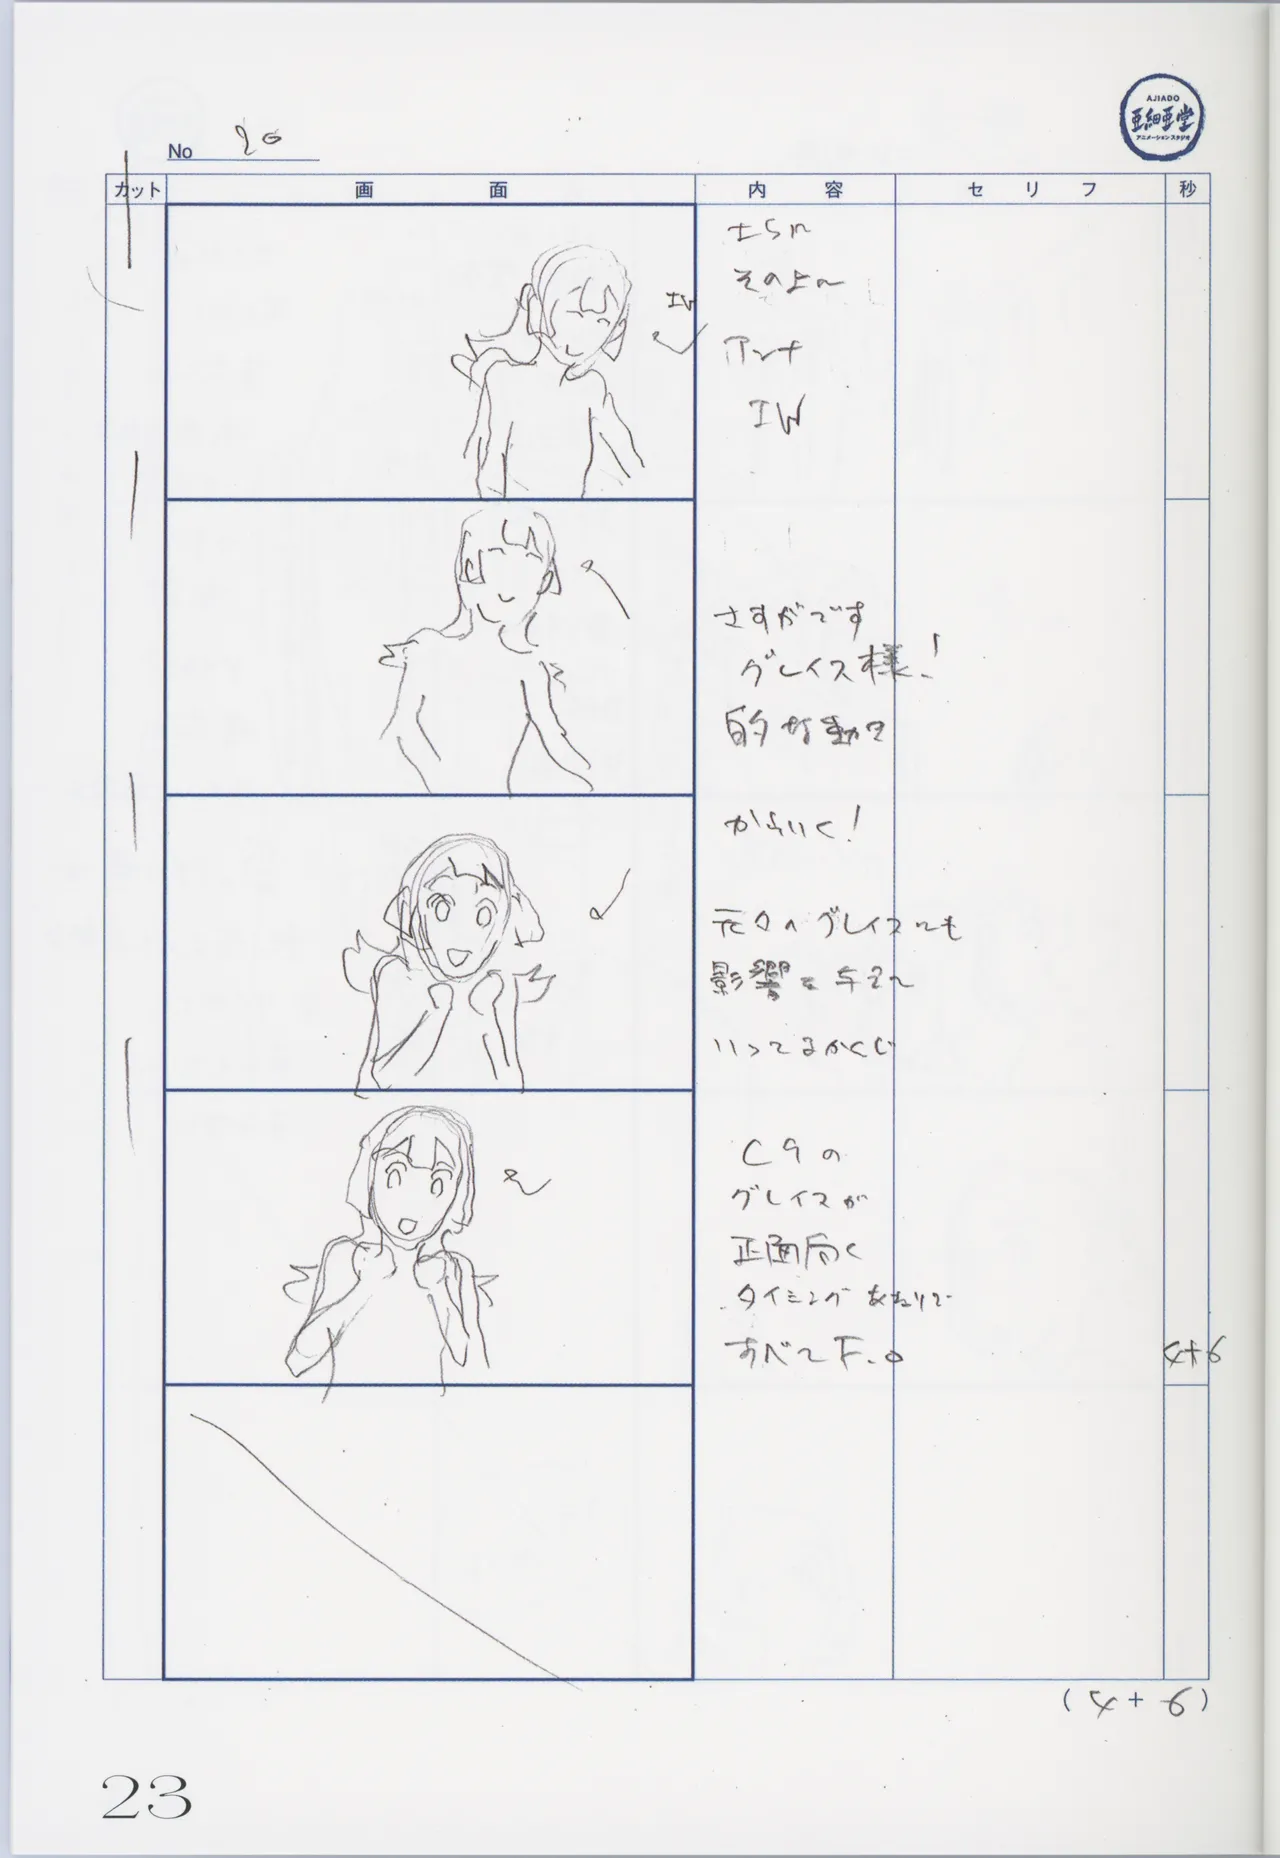 AJIADO
亜細亜堂
アニメーションスタジオ
No 20
カット 画面 内容 セリフ 秒
さらに
その上に
アンナ
IN
IN
さすがです
グレイス様!
的な動き
かわいく!
元々のグレイスにも
影響を与えて
いってるかんじ
C9の
グレイスが
正面向く
タイミングあたりで
すべてF.O
4+6
(4+6)
23